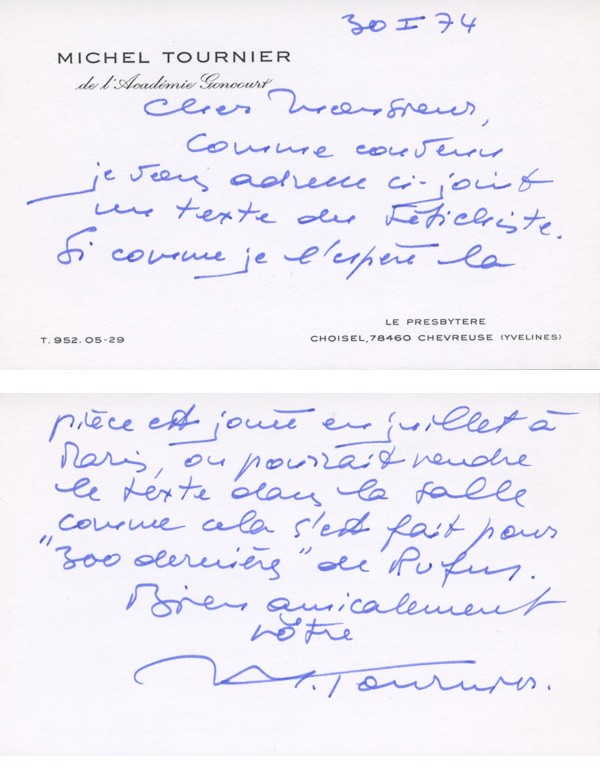 30 I 74
MICHEL TOURNIER
de l'Académie Goncourt
Cher Monsieur,
Comme convenu
je vous adresse ci-joint
un texte du Fétichiste.
Si comme je l'espère la
LE PRESBYTERE
T. 952. 05-29
CHOISEL, 78460 CHEVREUSE (YVELINES)
pièce est jouée en juillet à
Paris, on pourrait vendre
le texte dans la salle
comme cela s'est fait pour
"300 dernières" de Rufus.
Bien amicalement
vôtre
M. Tournier.